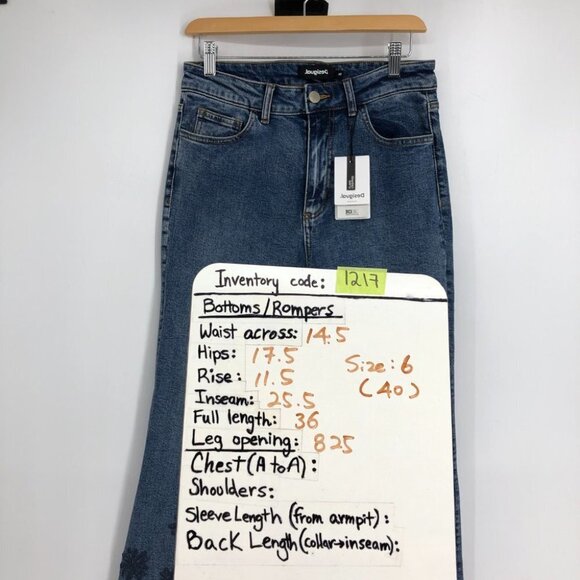 Desigual.
Desigual.
Inventory code: 1217
Bottoms/Rompers
Waist across: 14.5
Hips: 17.5
Rise: 11.5
Size: 6
(40)
Inseam: 25.5
Full length: 36
Leg opening: 825
Chest (A to A):
Shoulders:
Sleeve Length (from armpit):
Back Length (collar→inseam):